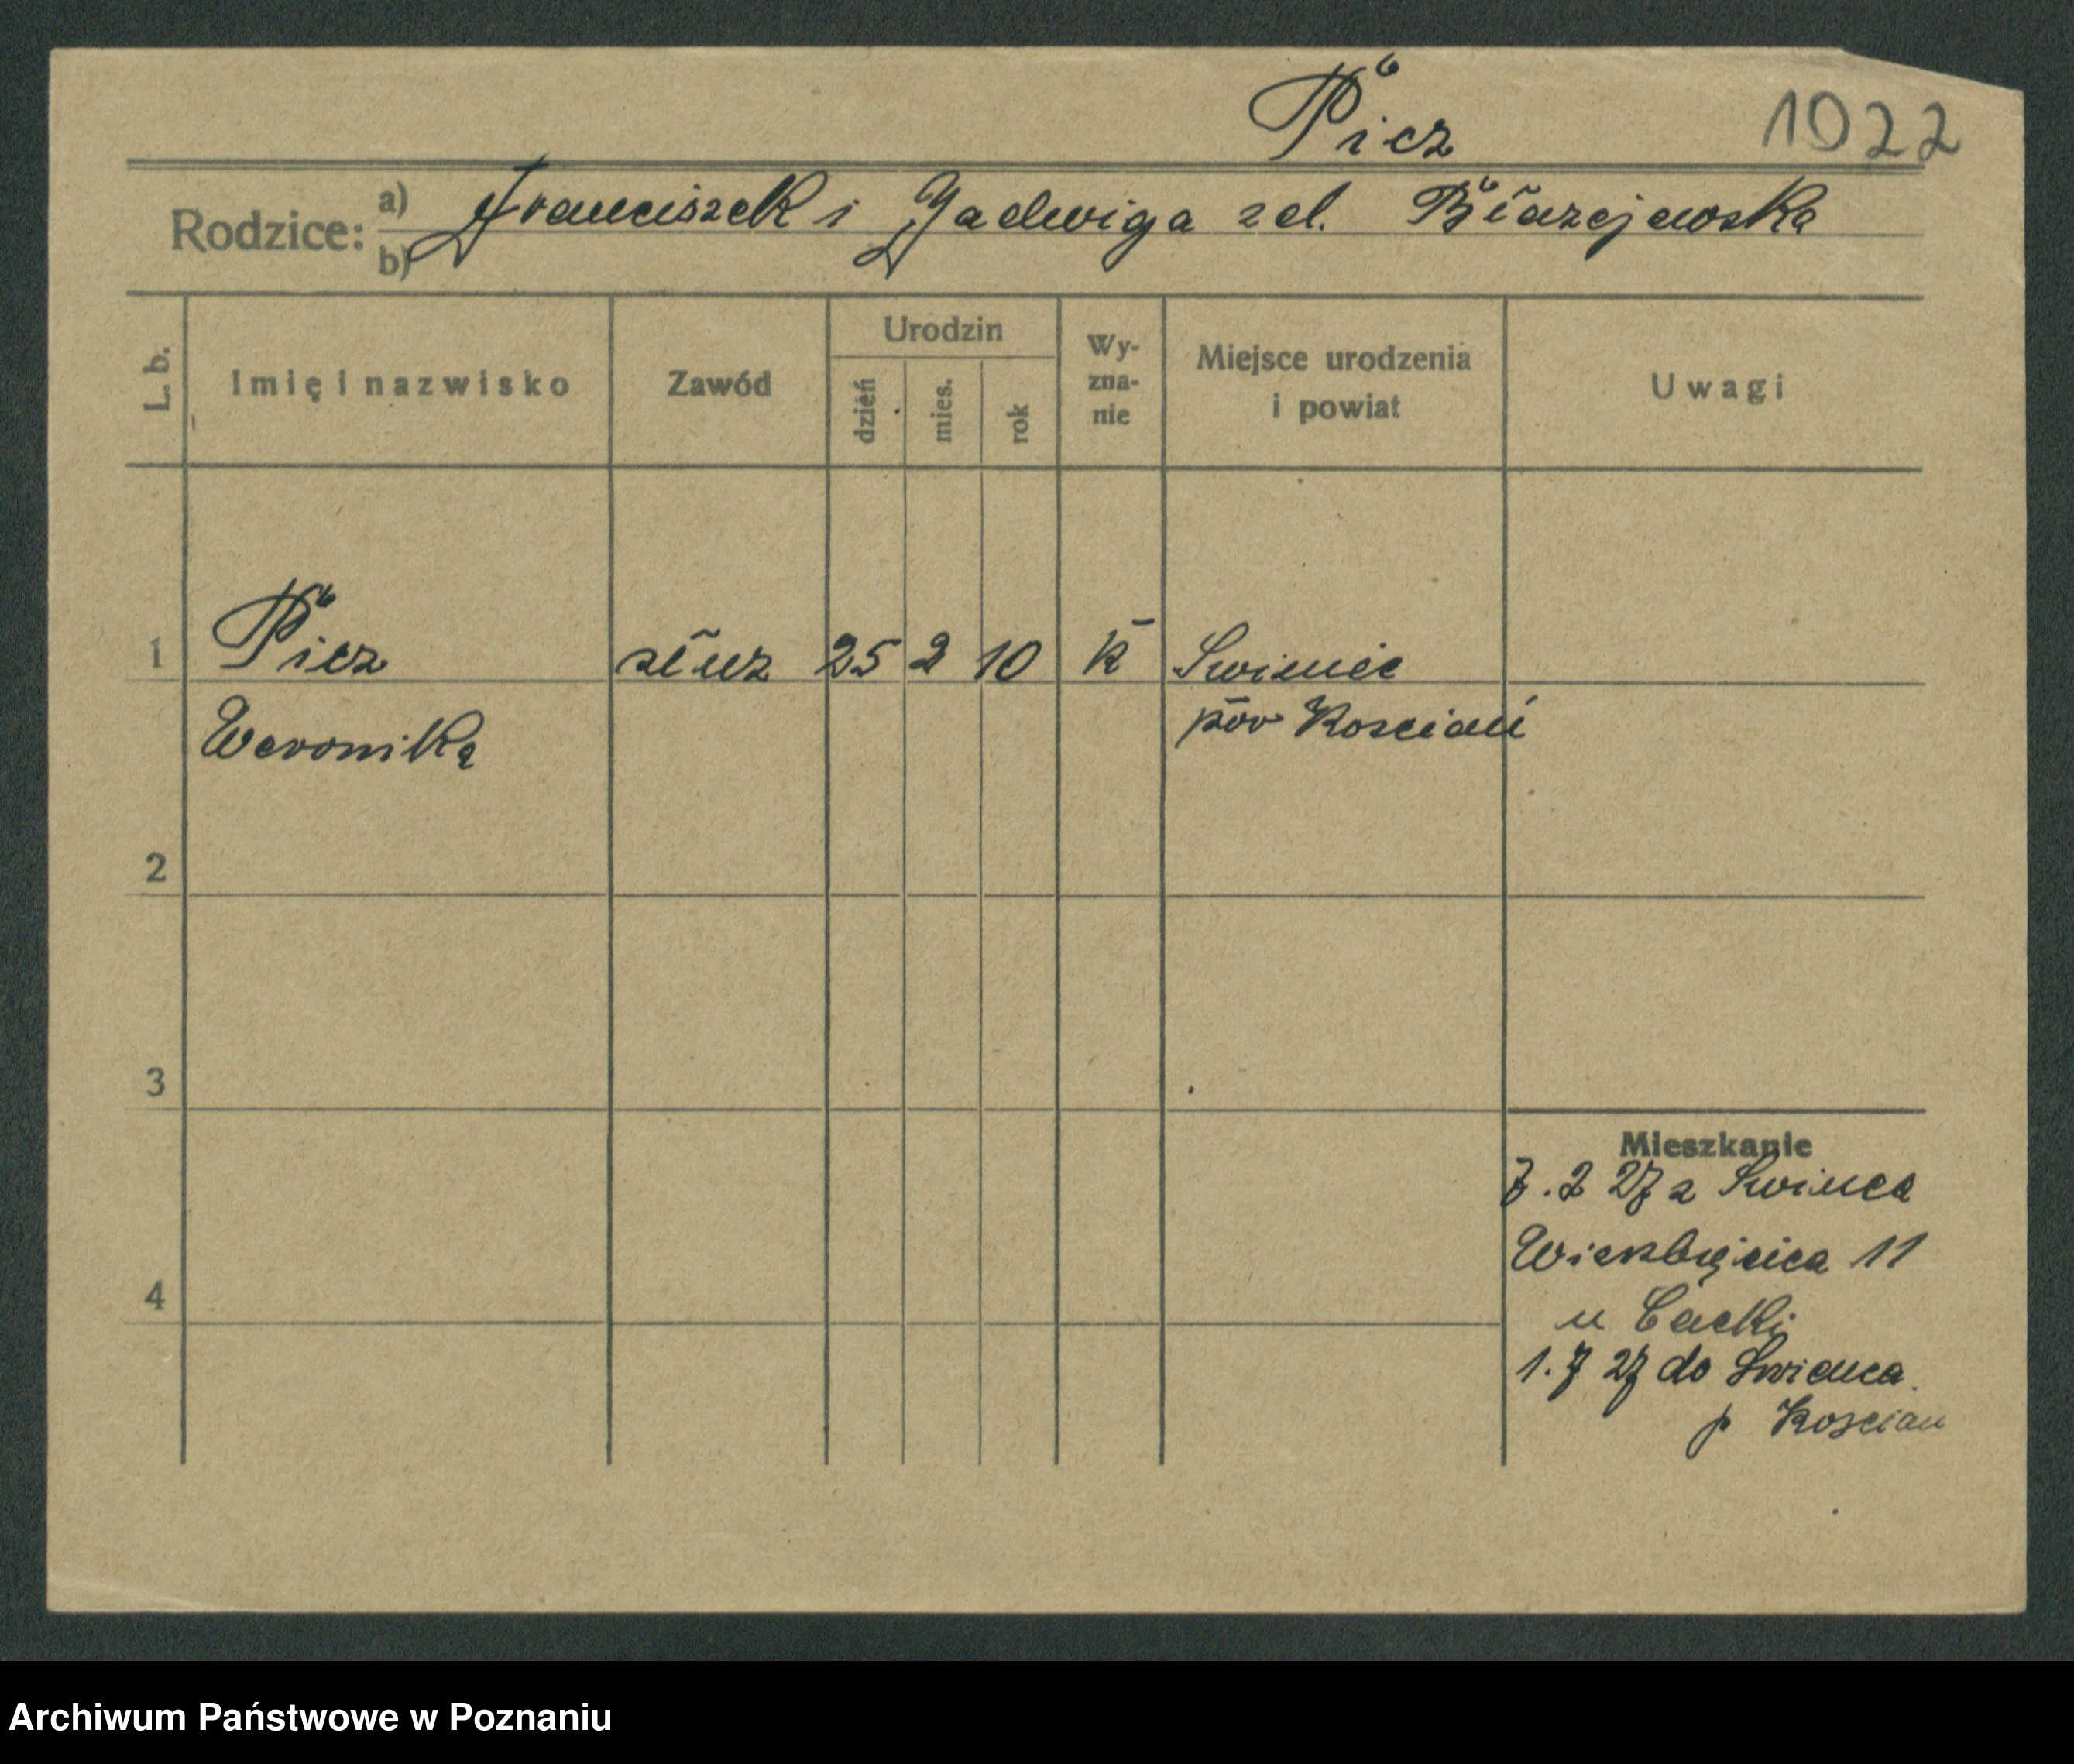 Picz 1022
Rodzice: a) Franciszek i Jadwiga zd. Błazejewska
b)
L. b. Imię i nazwisko Zawód Urodzin dzień mies. rok Wy-zna-nie Miejsce urodzenia i powiat Uwagi
1 Picz służ 25 2 10 k Swiniec
Weronika pow Koscian
2
3
4
Mieszkanie
7.2 27 z Swinca
Wierzbięcica 11
u
1.7 27 do Swienca
p Koscian
Archiwum Państwowe w Poznaniu